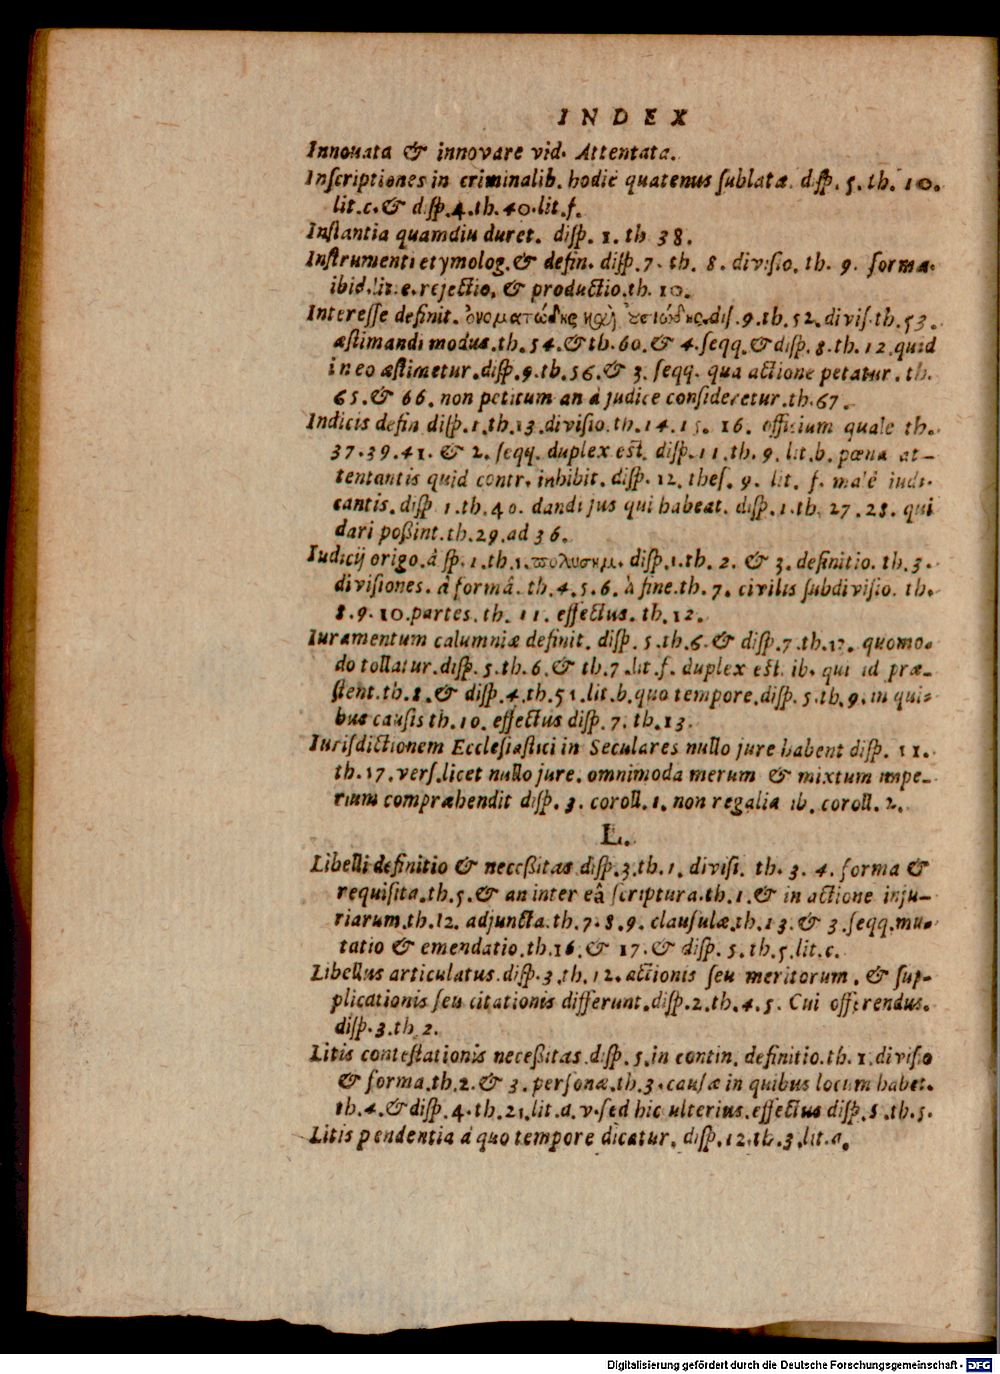 INDEX
Innovata & innovare vid. Attentata.
Inscriptiones in criminalib. hodiè quatenus sublatæ. disp. 5. th. 10.
lit. c. & disp. 4. th. 40. lit. f.
Instantia quamdiu duret. disp. 1. th 38.
Instrumenti etymolog. & defin. disp. 7. th. 8. divisio. th. 9. forma.
ibid. lit. e. rejectio, & productio. th. 10.
Interesse definit. ὀνοματώδης καὶ ὐσιώδης. dis. 9. th. 52. divis. th. 53.
æstimandi modus. th. 54. & th. 60. & 4. seqq. & disp. 8. th. 12. quid
in eo æstimetur. disp. 9. th. 56. & 3. seqq. qua actione petatur. th.
65. & 66. non petitum an à judice consideretur. th. 67.
Iudicis defin disp. 1. th. 13. divisio. th. 14. 15. 16. officium quale th.
37. 39. 41. & 2. seqq. duplex est. disp. 11. th. 9. lit. b. pœna at-
tentantis quid contr. inhibit. disp. 12. thes. 9. lit. f. malè iudi-
cantis. disp 1. th. 40. dandi jus qui habeat. disp. 1. th. 27. 28. qui
dari poßint. th. 29. ad 36.
Iudicij origo. disp. 1. th. 1. πολυσημ. disp. 1. th. 2. & 3. definitio. th. 3.
divisiones. â formâ. th. 4. 5. 6. à fine. th. 7. civilis subdivisio. th.
8. 9. 10. partes. th. 11. effectus. th. 12.
Iuramentum calumniæ definit. disp. 5. th. 6. & disp. 7. th. 12. quomo-
do tollatur. disp. 5. th. 6. & th. 7. lit. f. duplex est. ib. qui id præ-
stent. th. 8. & disp. 4. th. 51. lit. b. quo tempore. disp. 5. th. 9. in qui-
bus causis th. 10. effectus disp. 7. th. 13.
Iurisdictionem Ecclesiastici in Seculares nullo jure habent disp. 11.
th. 17. vers. licet nullo jure. omnimoda merum & mixtum impe-
rium compræhendit disp. 3. coroll. 1. non regalia ib. coroll. 2.
L.
Libelli definitio & neceßitas disp. 3. th. 1. divisi. th. 3. 4. forma &
requisita. th. 5. & an inter eâ scriptura. th. 1. & in actione inju-
riarum. th. 12. adjuncta. th. 7. 8. 9. clausulæ. th. 13. & 3. seqq. mu-
tatio & emendatio. th. 16. & 17. & disp. 5. th. 5. lit. c.
Libellus articulatus. disp. 3. th. 12. actionis seu meritorum, & sup-
plicationis seu citationis differunt. disp. 2. th. 4. 5. Cui offerendus.
disp. 3. th 2.
Litis contestationis neceßitas. disp. 5. in contin. definitio. th. 1. divisio
& forma. th. 2. & 3. personæ. th. 3. causæ in quibus locum habet.
th. 4. & disp. 4. th. 21. lit. a. v. sed hic ulterius. effectus disp. 5. th. 5.
Litis pendentia à quo tempore dicatur. disp. 12. th. 3. lit. a.
Digitalisierung gefördert durch die Deutsche Forschungsgemeinschaft - DFG